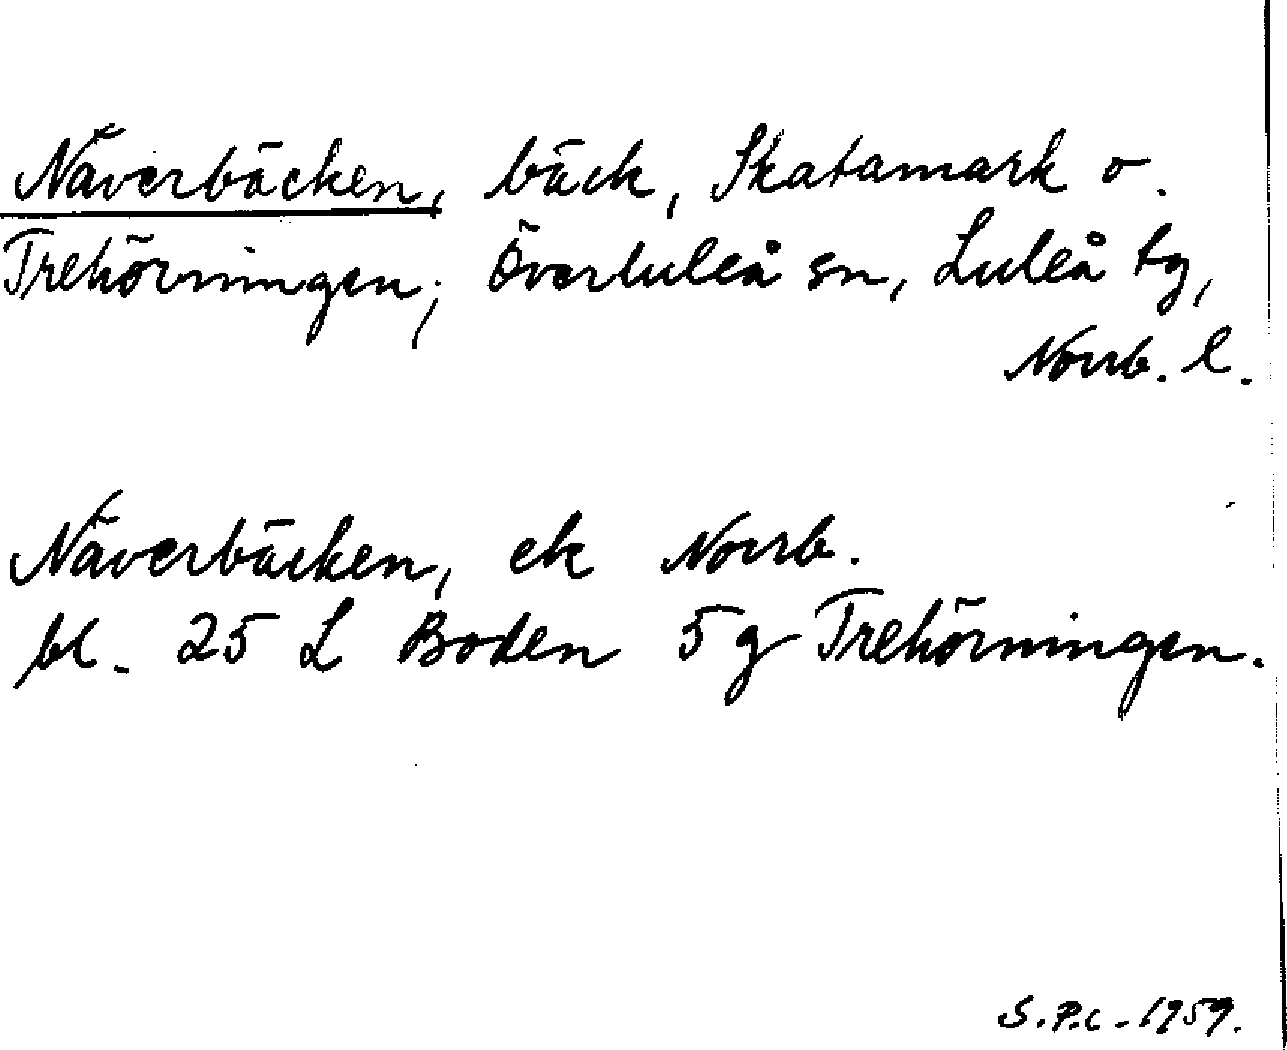 Näverbäcken, bäck, Skatamark o.
Trehörningen; Överluleå sn, Luleå tg,
Norrb. l.
Näverbäcken, ek Norrb.
bl. 25 L Boden 5g Trehörningen.
S.P.C. 1959.